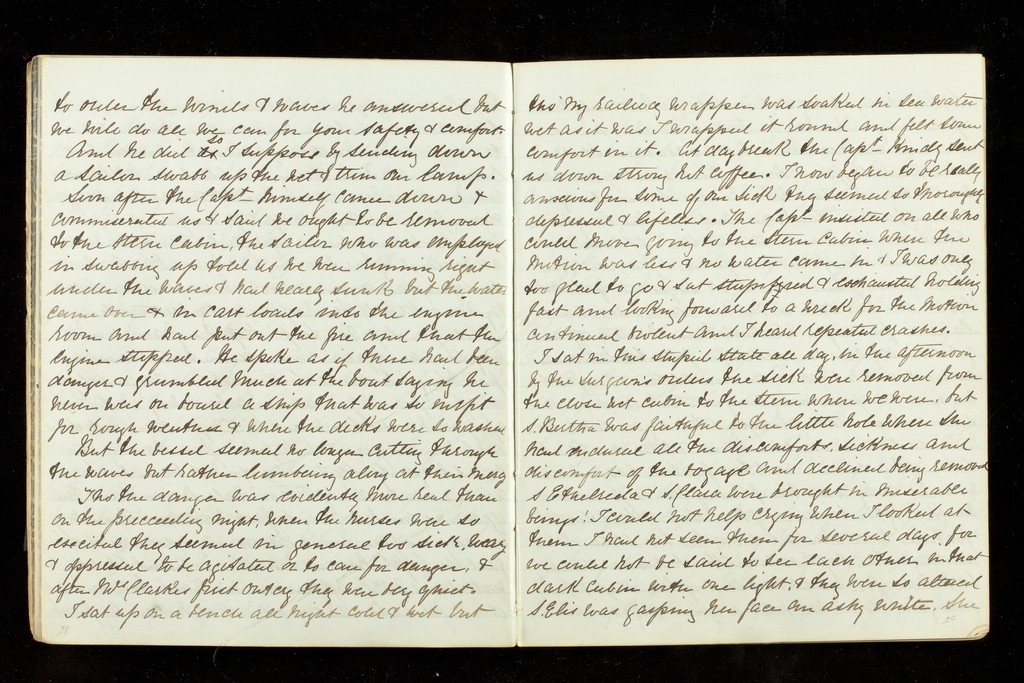 to order the winds & waves he answered but
we will do all we can for your safety & comfort.
And he did so I suppose by sending down
a sailor swabb up the wet & trim our lamp.
Soon after the Capt himself came down &
commiserated us & said we ought to be removed
to the stern cabin, the sailor who was employed
in swabbing up told us we were running right
under the waves & had nearly sunk but the water
came over & in cart loads into the engine
room and had put out the fire and that the
engine stopped. He spoke as if there had been
danger & grumbled much at the boat saying he
never was on board a ship that was so unfit
for rough weather & where the decks were so washed
But the vessel seemed no longer cutting through
the waves but rather lumbering along at their mercy
Tho the danger was evidently more real than
on the preceeding night, when the nurses were so
excited they seemed in general too sick, weary
& oppressed to be agitated or to care for danger, &
after Mrs Clarkes first outcry they were very quiet.
I sat up on a bench all night cold & wet but
tho' my railway wrapper was soaked in sea water
wet as it was I wrapped it round and felt some
comfort in it. At daybreak the Capt kindly sent
us down strong hot coffee. I now began to be really
anxious for some of our sick they seemed so thoroughly
depressed & lifeless. The Capt insisted on all who
could move going to the stern cabin where the
motion was less & no water came in & I was only
too glad to go & sat stupifyed & exhausted holding
fast and looking forward to a wreck for the motion
continued violent and I heard repeated crashes.
I sat in this stupid state all day, in the afternoon
by the surgeon's orders the sick were removed from
the close wet cabin to the stern where we were, but
S. Bertha was faithful to the little hole where she
had endured all the discomforts, sickness and
discomfort of the voyage and declined being removed
S Ethelreda & S. Clara were brought in miserable
beings! I could not help crying when I looked at
them I had not seen them for several days, for
we could not be said to see each other in that
dark cabin with one light, & they were so altered
S. Elis was gasping her face an ashy white. She
28
29